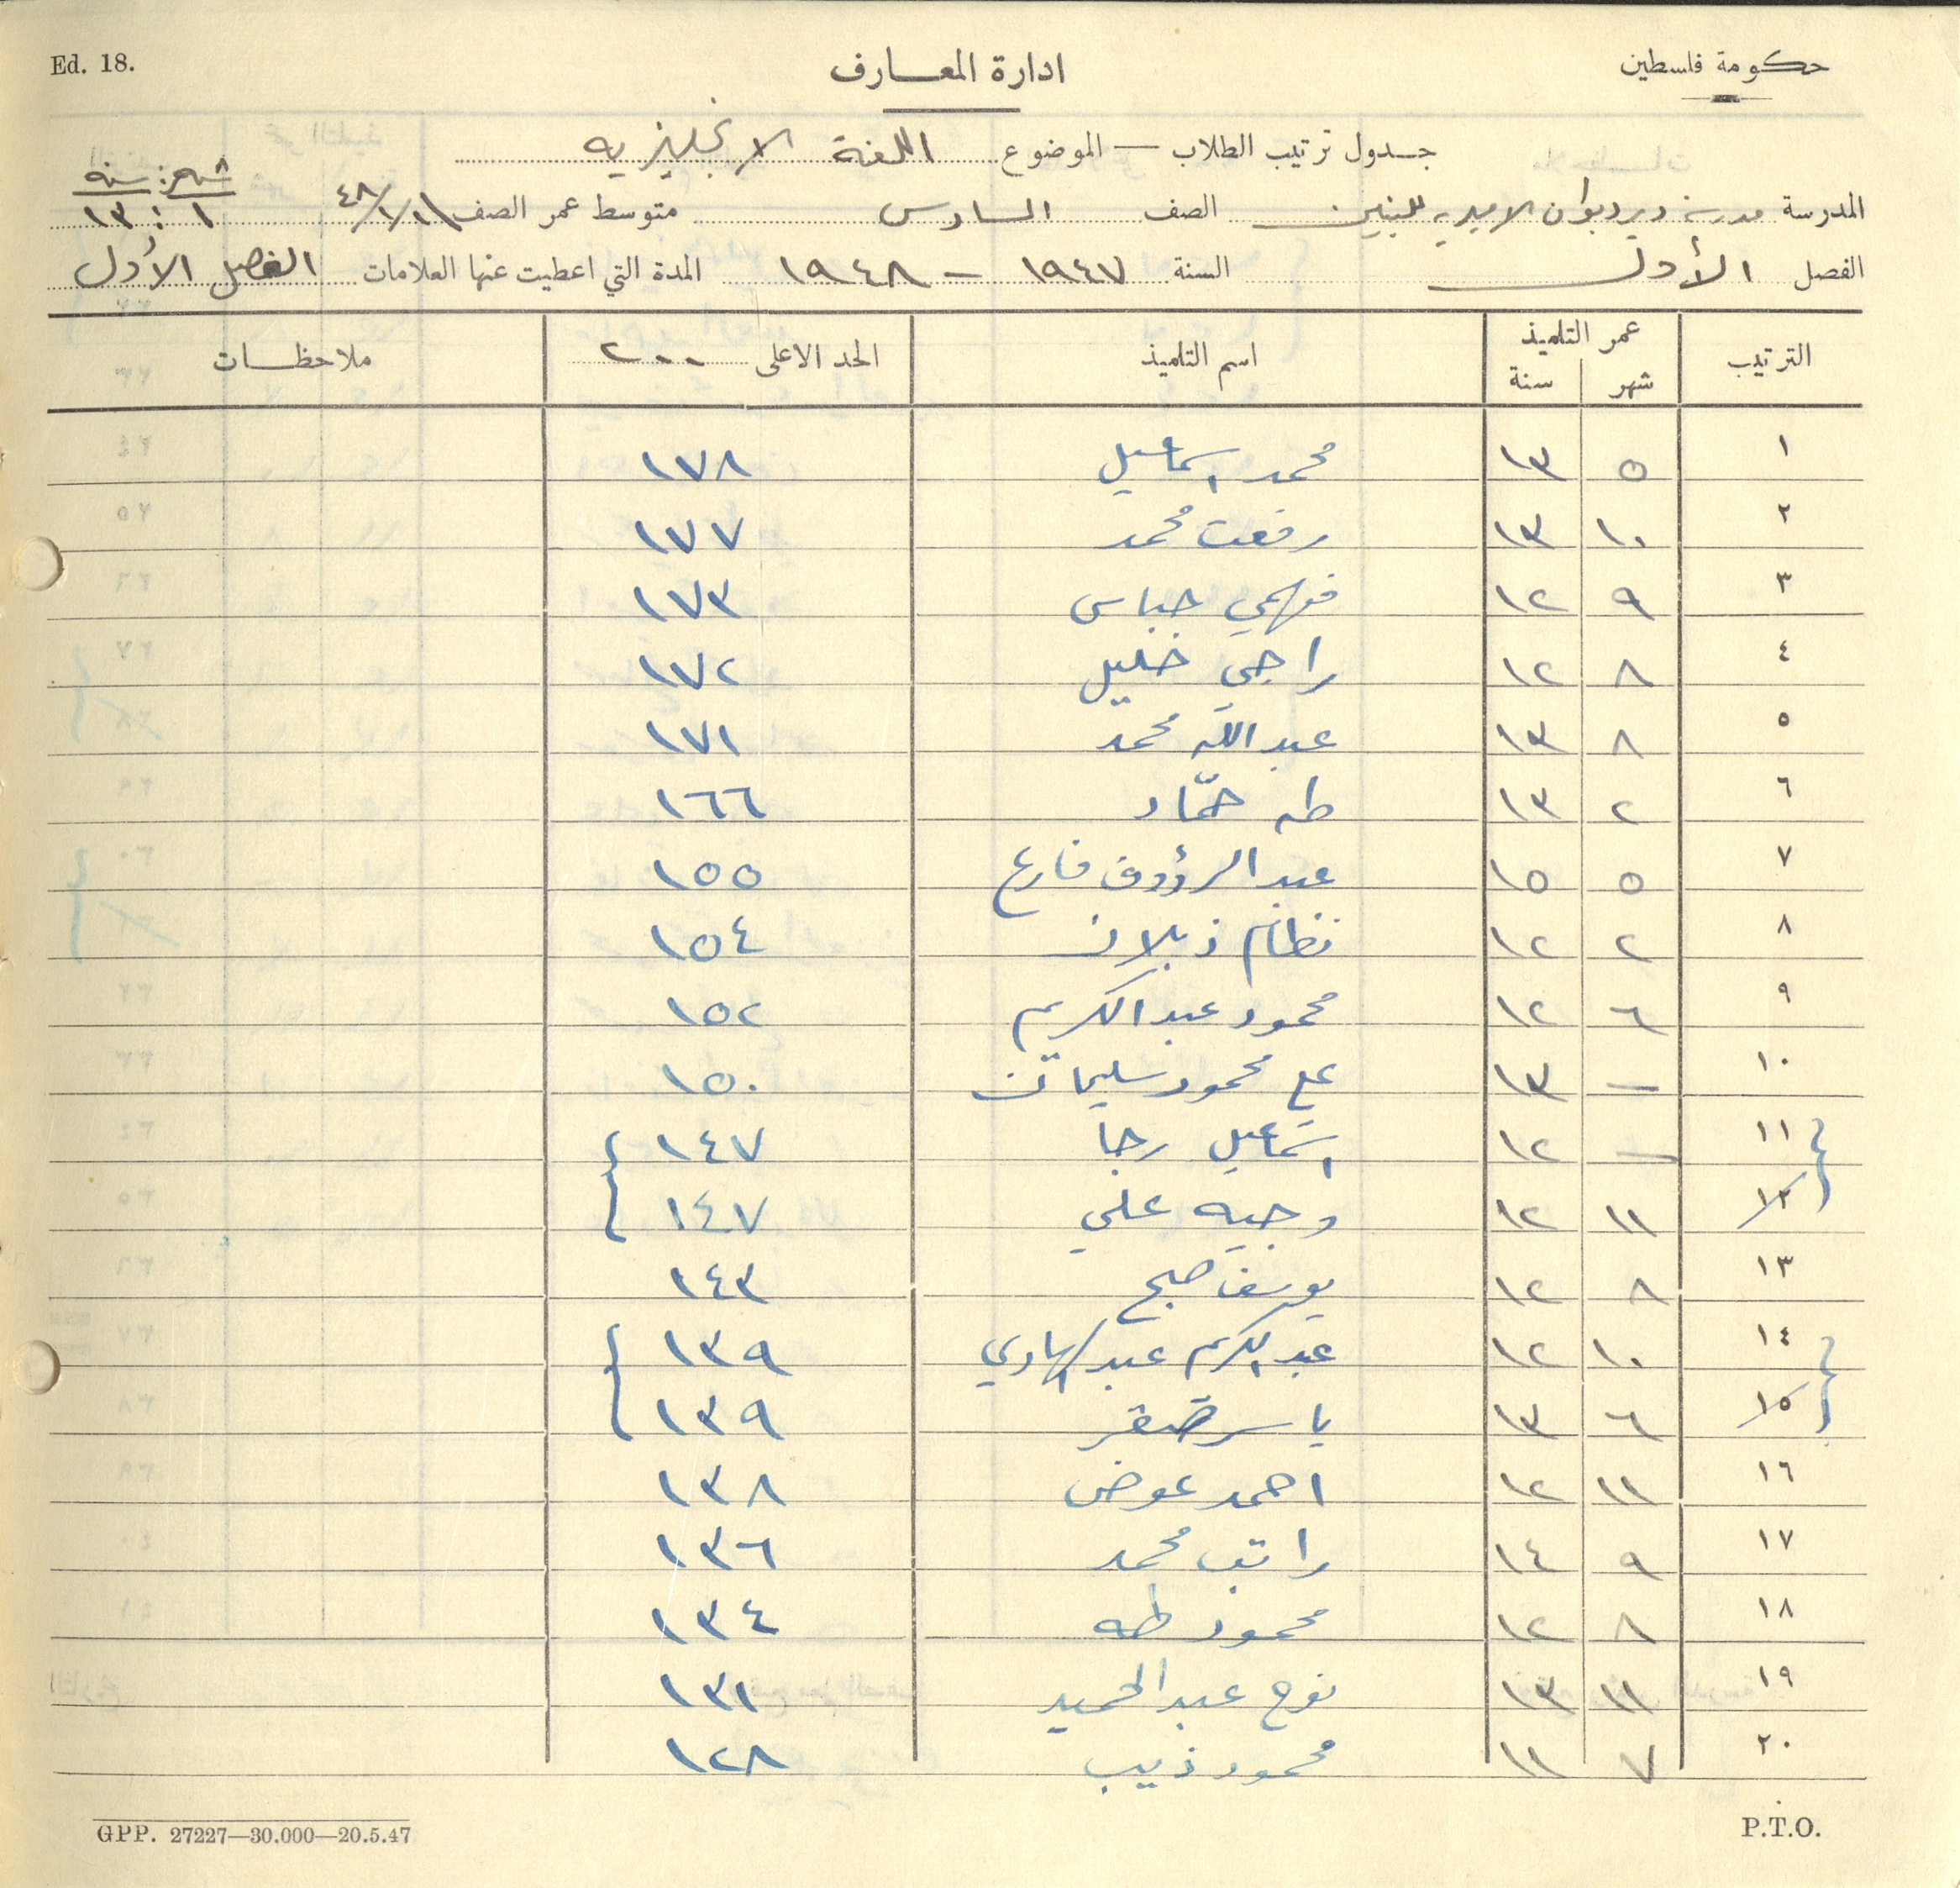 Ed. 18.
حكومة فلسطين
ادارة المعارف
جدول ترتيب الطلاب — الموضوع اللغة الانجليزيه
المدرسة مدرسة ديردبوان الاميريه للبنين الصف السادس متوسط عمر الصف شهر : سنه ١ : ١٣
الفصل الأول السنة ١٩٤٧ - ١٩٤٨ المدة التي اعطيت عنها العلامات الفصل الأول
الترتيب عمر التلميذ اسم التلميذ الحد الاعلى ٢٠٠ ملاحظات
شهر سنة
١ ٥ ١٣ محمد اسماعيل ١٧٨
٢ ١٠ ١٣ رفعت محمد ١٧٧
٣ ٩ ١٢ فهمي عباس ١٧٣
٤ ٨ ١٢ راجي خليل ١٧٢
٥ ٨ ١٣ عبد الله محمد ١٧١
٦ ٢ ١٣ طه حمّاد ١٦٦
٧ ٥ ١٥ عبد الرؤوف فارع ١٥٥
٨ ٢ ١٢ نظام ذبلان ١٥٤
٩ ٦ ١٢ محمود عبد الكريم ١٥٢
١٠ — ١٣ علي محمود سليمان ١٥٠
١١ — ١٢ اسماعيل رجا ١٤٧
١٢ ١١ ١٢ وجيه علي ١٤٧
١٣ ٨ ١٢ يوسف صبح ١٤٣
١٤ ١٠ ١٢ عبد الكريم عبد الهادي ١٣٩
١٥ ٦ ١٣ ياسر صقر ١٣٩
١٦ ١١ ١٢ احمد عوض ١٣٨
١٧ ٩ ١٤ راتب محمد ١٣٦
١٨ ٨ ١٢ محمود طه ١٣٤
١٩ ١١ ١٣ نوح عبد الحميد ١٣١
٢٠ ٧ ١١ محمود ذيب ١٢٨
GPP. 27227—30.000—20.5.47
P.T.O.